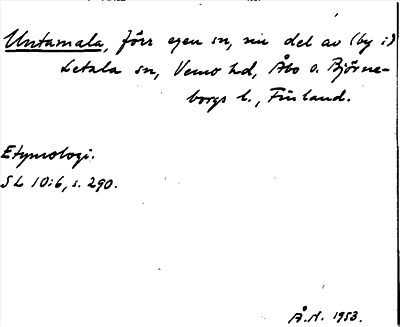 Untamala, förr egen sn, nu del av (by i)
Letala sn, Vemo hd, Åbo o. Björne-
borgs l., Finland.
Etymologi.
SL 10:6, s. 290.
Å.N. 1953.